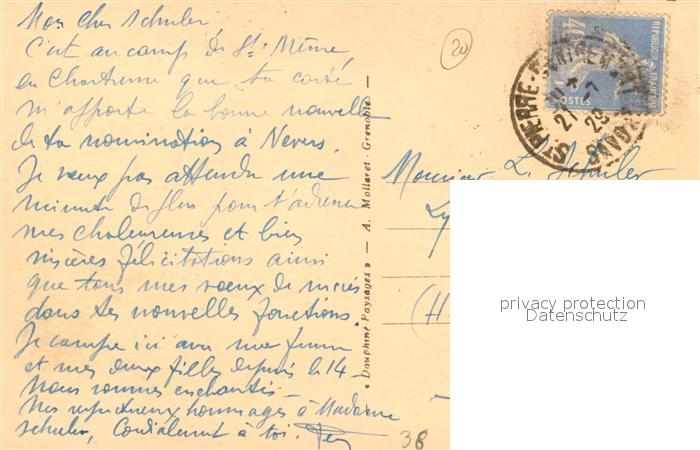 Mon cher Schuler
C'est au camp de St. Même
en Chartreuse que ta carte
m'apporte la bonne nouvelle
de ta nomination à Nevers.
Je veux pas attendre une
minute de plus pour t'adresser
mes chaleureuses et bien
sincères félicitations ainsi
que tous mes voeux de succès
dans tes nouvelles fonctions.
Je campe ici avec ma femme
et mes deux filles depuis le 14 —
Nous sommes enchantés —
Mes respectueux hommages à Madame
Schuler, Cordialement à toi.
20
38
« Dauphiné Paysages » — A. Mollaret - Grenoble —
40
POSTES
REPUBLIQUE FRANÇAISE
ST PIERRE-D'ENTREMONT
21 - 7
29
Monsieur L. Schuler
Ly
(H
privacy protection
Datenschutz